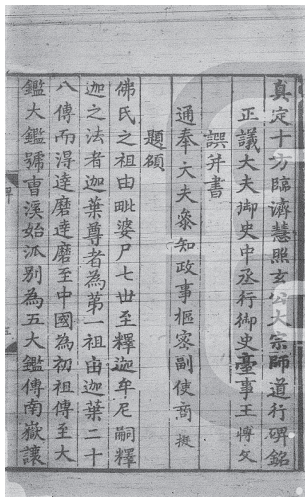 真定十方臨濟慧照玄公大宗師道行碑銘
正議大夫御史中丞行御史臺事王博文
譔并書
通奉大夫參知政事樞密副使商挺
題額
佛氏之祖由毗婆尸七世至釋迦牟尼嗣釋
迦之法者迦葉尊者為第一祖由迦葉二十
八傳而淂達磨達磨至中國為初祖傳至大
鑑大鑑號曹溪始泒別為五大鑑傳南嶽讓